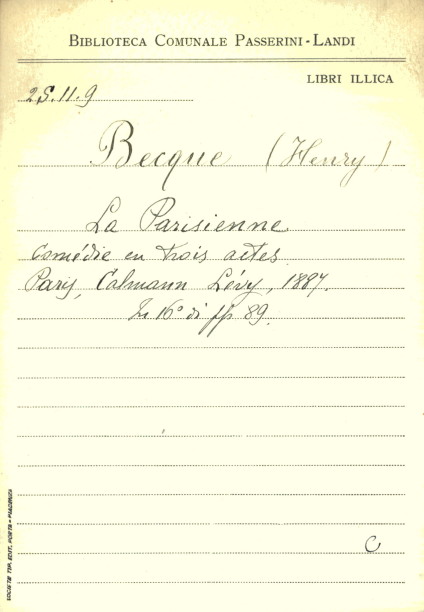 BIBLIOTECA COMUNALE PASSERINI-LANDI
LIBRI ILLICA
2S.11.9
Becque (Henry)
La Parisienne
Comédie en trois actes
Paris, Calmann Lévy, 1887.
In 16° di pp 89.
C
SOCIETÀ TIP. EDIT. PORTA - PIACENZA